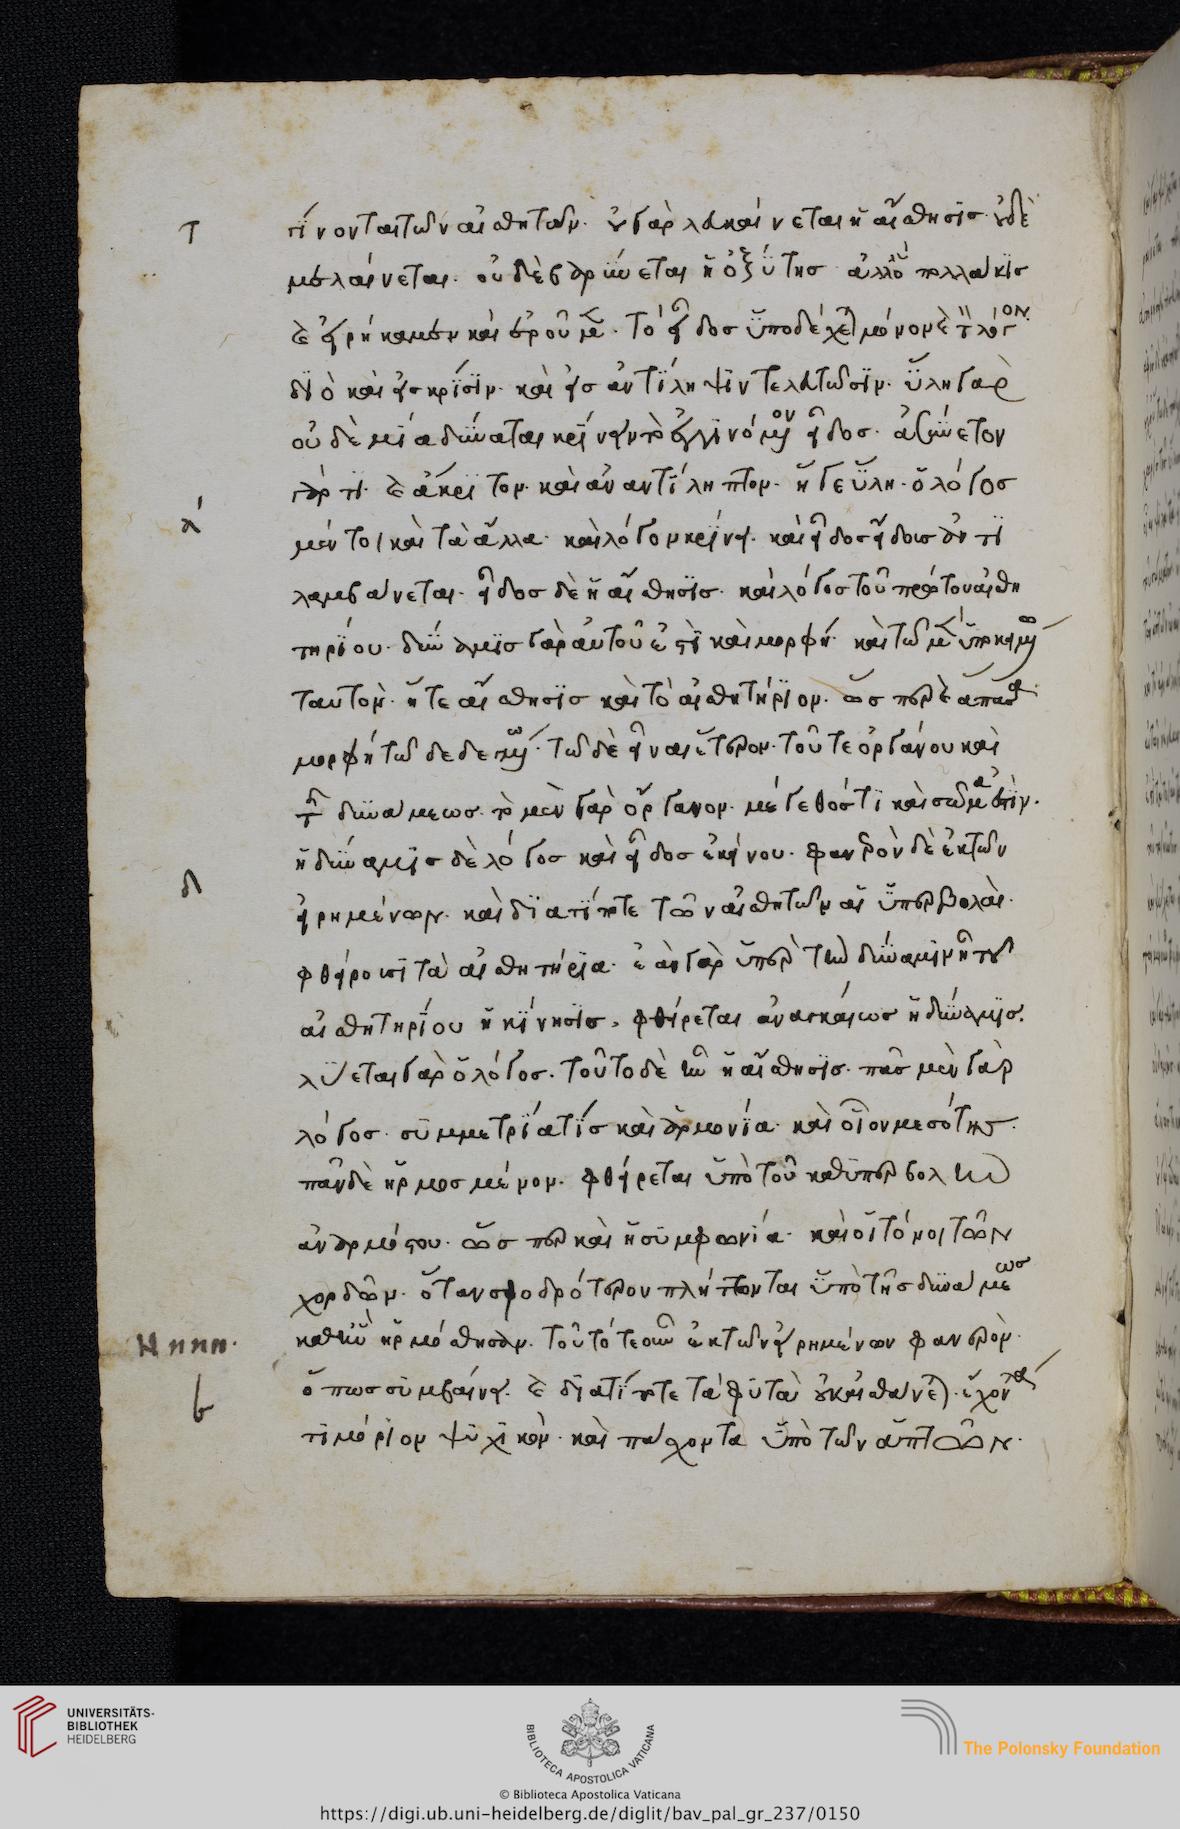 τ
τίνονται τῶν αἰσθητῶν. οὐ γὰρ λευκαίνεται ἡ αἴσθησις. οὐδὲ
μελαίνεται. οὐδὲ βαρύνεται ἡ ὀξύτης. ἀλλ' ὃ πολλάκις
καὶ εἰρήκαμεν καὶ ἐροῦμεν. τὸ εἶδος ὑποδέχεται μόνον καὶ τὸν λόγον.
διὸ καὶ εἰς κρίσιν. καὶ εἰς ἀντίληψιν τελευτῶσιν. ὕλη γὰρ
οὐδεμία δύναται κρίνειν τὸ ἐγγινόμενον εἶδος. ἀξύνετον
γάρ τι καὶ ἄκριτον. καὶ ἀναντίληπτον. ἥ γε ὕλη. ὁ λόγος
λ
μέντοι καὶ τὰ ἄλλα. καὶ λόγον κρίνει. καὶ εἶδος εἴδους ἀντι
λαμβάνεται. εἶδος δὲ ἡ αἴσθησις. καὶ λόγος τοῦ πρώτου αἰσθη
τηρίου. δύναμις γὰρ αὐτοῦ ἐστὶ καὶ μορφή. καὶ τῶ μὲν ὑποκειμένω
ταυτὸν. ἥ τε αἴσθησις καὶ τὸ αἰσθητήριον. ὥσπερ καὶ ἅπασα
μορφὴ τῶ δεδεγμένω. τῶ δὲ εἶναι ἕτερον. τοῦ τε ὀργάνου καὶ
τῆς δυνάμεως. τὸ μὲν γὰρ ὄργανον. μέγεθός τι καὶ σῶμα ἐστὶν.
ἡ δύναμις δὲ λόγος καὶ εἶδος ἐκείνου. φανερὸν δὲ ἐκ τῶν
δ
εἰρημένων. καὶ διατί ποτε τῶν αἰσθητῶν αἱ ὑπερβολαὶ.
φθείρουσι τὰ αἰσθητήρια. ἐὰν γὰρ ὑπὲρ τὴν δύναμιν ἦ τοῦ
αἰσθητηρίου ἡ κίνησις. φθείρεται ἀναγκαίως ἡ δύναμις.
λύεται γὰρ ὁ λόγος. τοῦτο δὲ ἦν ἡ αἴσθησις. πᾶς μὲν γὰρ
λόγος. συμμετρία τίς καὶ ἁρμονία. καὶ οἷον μεσότης.
πᾶν δὲ ἡρμοσμένον. φθείρεται ὑπὸ τοῦ καθ' ὑπερβολὴν
ἀναρμόστου. ὥσπερ καὶ ἡ συμφωνία. καὶ οἱ τόνοι τῶν
χορδῶν. ὅταν σφοδρότερον πλήττονται ὑπὸ τῆς δυνάμεως
καθ' ἣν ἡρμόσθησαν. τοῦτό τε οὖν ἐκ τῶν εἰρημένων φανερὸν.
ὅπως συμβαίνει. καὶ διατί ποτε τὰ φυτὰ οὐκ αἰσθάνεται. ἔχοντα
τι μόριον ψυχικὸν. καὶ πάσχοντα ὑπὸ τῶν ἁπτῶν.
UNIVERSITÄTS-
BIBLIOTHEK
HEIDELBERG
BIBLIOTECA APOSTOLICA VATICANA
The Polonsky Foundation
© Biblioteca Apostolica Vaticana
https://digi.ub.uni-heidelberg.de/diglit/bav_pal_gr_237/0150